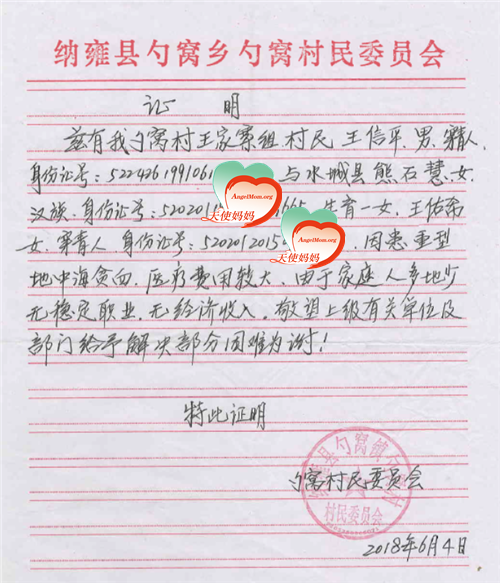 纳雍县勺窝乡勺窝村民委员会
证 明
兹有我勺窝村王家寨组村民王信平,男,穿青人,
身份证号:5224261991061 与水城县熊石慧,女,
汉族,身份证号:520201 生育一女,王佑
女,穿青人,身份证号:5202012015 ,因患重型
地中海贫血,医疗费用较大,由于家庭人多地少
无稳定职业,无经济收入,敬望上级有关单位及
部门给予解决部分困难为谢!
特此证明
勺窝村民委员会
2018年6月4日
AngelMom.org
天使妈妈
AngelMom.org
天使妈妈
村民委员会